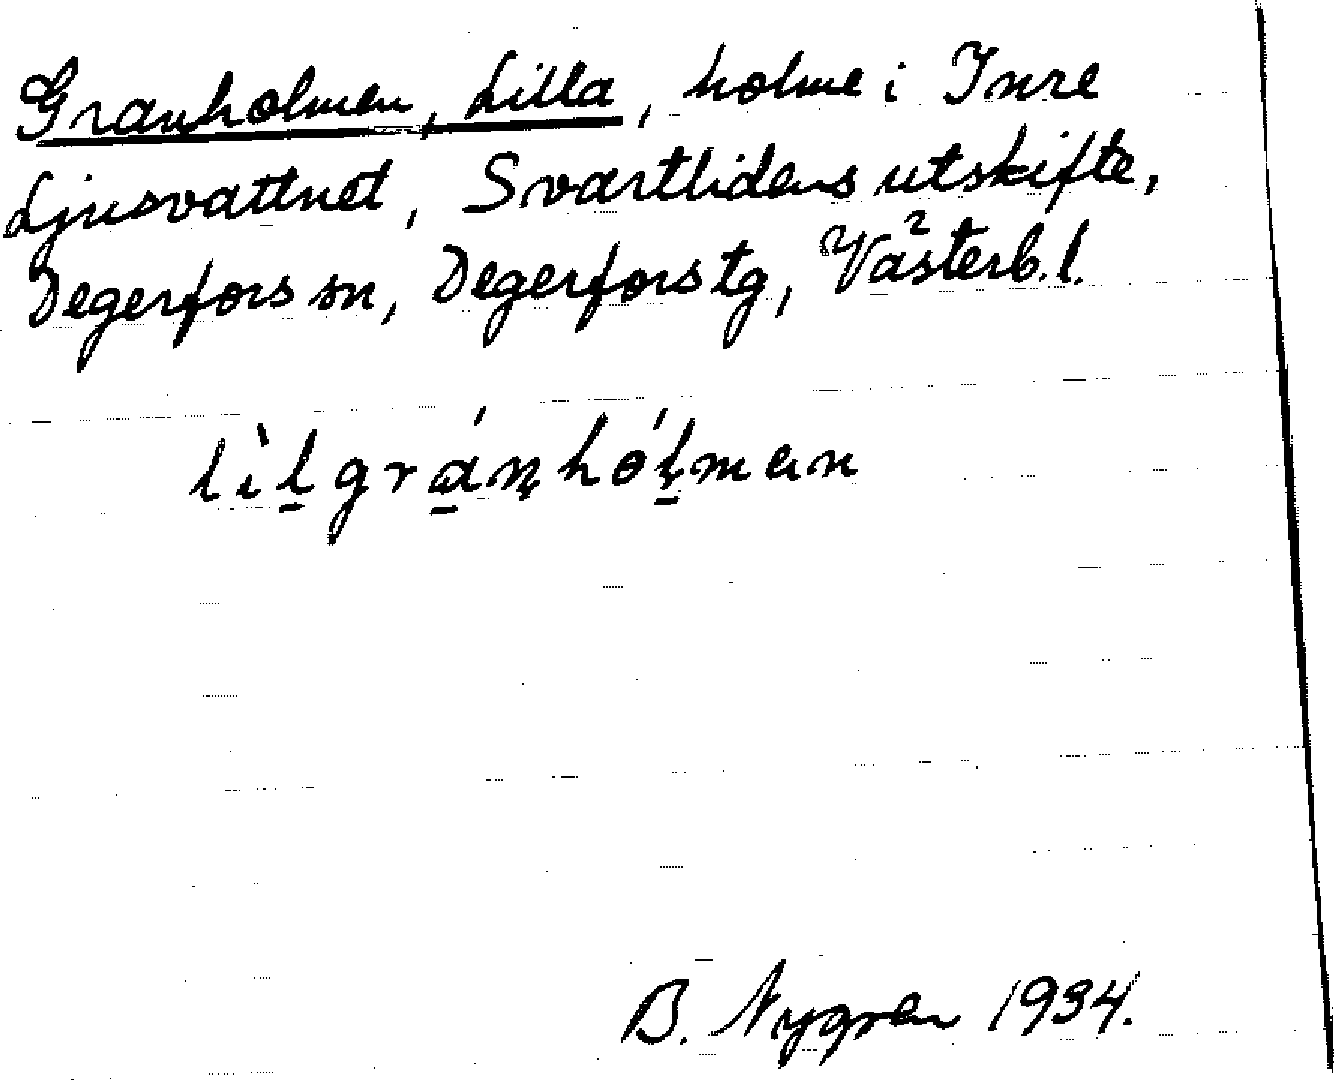 Granholmen, Lilla, holme i Inre
Ljusvattnet, Svartlidens utskifte,
Degerfors sn, Degerfors tg, Västerb. l.
lìl̠grá̠n̥hól̥̠mɐn
B. Nygren 1934.